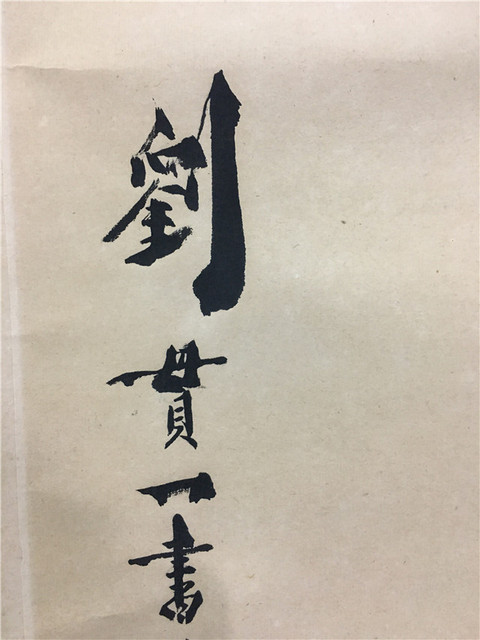 劉貫一書